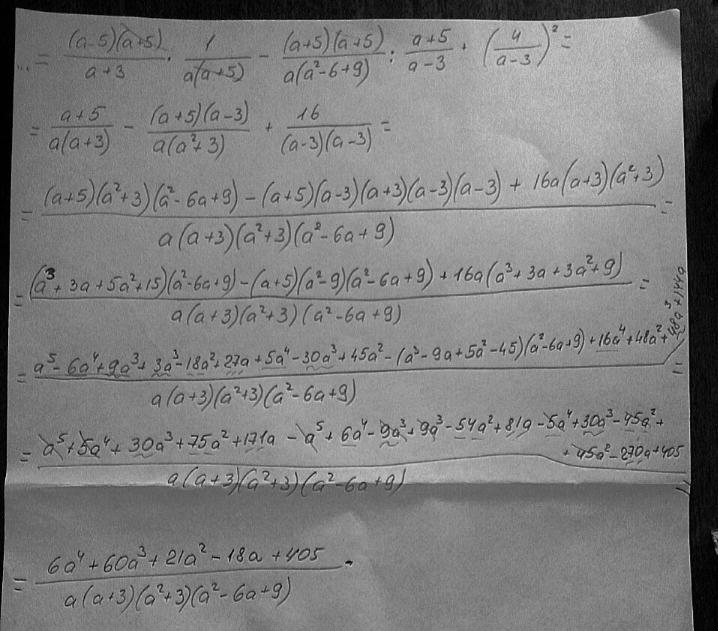 ... = \frac{(a-5)(a+5)}{a+3} \cdot \frac{1}{a(a+5)} - \frac{(a+5)(a+5)}{a(a^2-6+9)} : \frac{a+5}{a-3} + \left(\frac{4}{a-3}\right)^2 =
= \frac{a+5}{a(a+3)} - \frac{(a+5)(a-3)}{a(a^2+3)} + \frac{16}{(a-3)(a-3)} =
= \frac{(a+5)(a^2+3)(a^2-6a+9) - (a+5)(a-3)(a+3)(a-3)(a-3) + 16a(a+3)(a^2+3)}{a(a+3)(a^2+3)(a^2-6a+9)} =
= \frac{(a^3+3a+5a^2+15)(a^2-6a+9) - (a+5)(a^2-9)(a^2-6a+9) + 16a(a^3+3a+3a^2+9)}{a(a+3)(a^2+3)(a^2-6a+9)} =
= \frac{a^5-6a^4+9a^3+3a^3-18a^2+27a+5a^4-30a^3+45a^2-(a^3-9a+5a^2-45)(a^2-6a+9)+16a^4+48a^2+48a^3+144a}{a(a+3)(a^2+3)(a^2-6a+9)} =
= \frac{a^5+5a^4+30a^3+75a^2+171a-a^5+6a^4-9a^3+9a^3-54a^2+81a-5a^4+30a^3-45a^2+45a^2-270a+405}{a(a+3)(a^2+3)(a^2-6a+9)} =
= \frac{6a^4+60a^3+21a^2-18a+405}{a(a+3)(a^2+3)(a^2-6a+9)}.